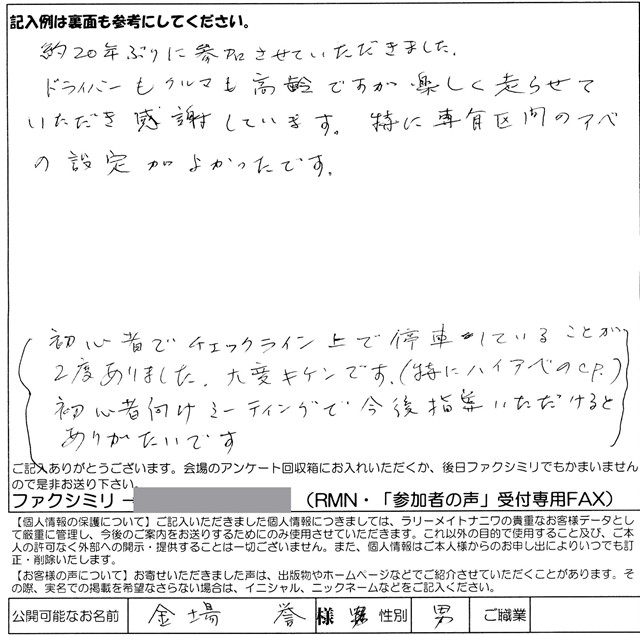 記入例は裏面も参考にしてください。
約20年ぶりに参加させていただきました.
ドライバーもクルマも高齢ですが楽しく走らせて
いただき感謝しています。特に専有区間のアベ
の設定がよかったです.
初心者でチェックライン上で停車していることが
2度ありました.大変キケンです.(特にハイアベのCP.)
初心者向けミーティングで今後指導いただけると
ありがたいです
ご記入ありがとうございます。会場のアンケート回収箱にお入れいただくか、後日ファクシミリでもかまいません
ので是非お送り下さい。
ファクシミリ (RMN・「参加者の声」受付専用FAX)
【個人情報の保護について】ご記入いただきました個人情報につきましては、ラリーメイトナニワの貴重なお客様データとし
て厳重に管理し、今後のご案内をお送りするためにのみ使用させていただきます。これ以外の目的で使用すること及び、ご本
人の許可なく外部への開示・提供することは一切ございません。また、個人情報はご本人様からのお申し出によりいつでも訂
正・削除いたします。
【お客様の声について】お寄せいただきました声は、出版物やホームページなどでご紹介させていただくことがあります。そ
の際、実名での掲載を希望なさらない場合は、イニシャル、ニックネームなどをご記入ください。
公開可能なお名前 金場 誉 様 性別 男 ご職業